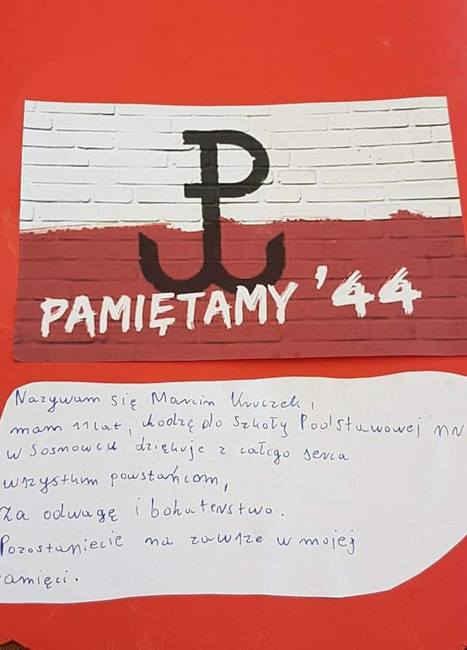 PAMIĘTAMY '44
Nazywam się Marcin Kruczek,
mam 11 lat, chodzę do Szkoły Podstawowej nr
w Sosnowcu dziękuje z całego serca
wszystkim powstańcom,
za odwagę i bohaterstwo.
Pozostaniecie na zawsze w mojej
amięci.